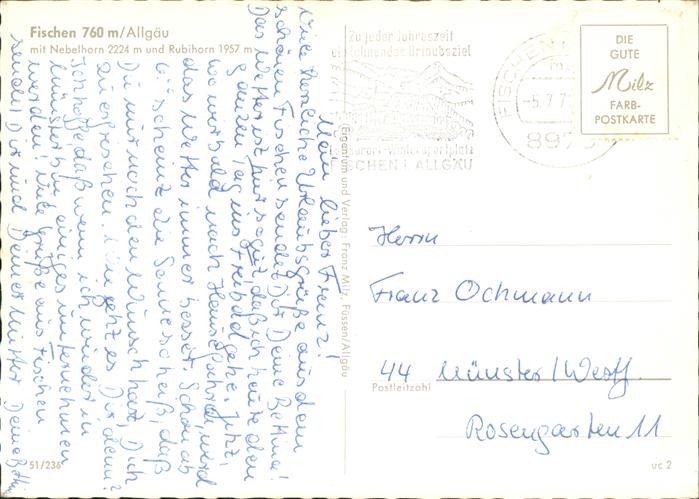 Fischen 760 m/Allgäu
mit Nebelhorn 2224 m und Rubihorn 1957 m
Mein lieber Franz!
Viele herzliche Urlaubsgrüße aus dem
schönen Fischen sendet Dir Deine Bettina!
Das Wetter ist hier so gut, daß ich heute den
ganzen Tag ins Freibad gehe. Jetzt,
wo wir bald nach Hause fahren, wird
das Wetter immer besser. Schon ab
6h scheint die Sonne so heiß, daß
Du nur noch den Wunsch hast, Dich
zu erfrischen. Wie geht es Dir denn?
Ich hoffe, daß wenn ich wieder in
Münster bin, einiges unternehmen
werden! Viele Grüße aus Fischen
sendet Dir und Deiner Mutter Deine
51/236
Eigentum und Verlag: Franz Milz, Füssen/Allgäu
Zu jeder Jahreszeit
ein lohnendes Urlaubsziel
FISCHEN I. ALLGÄU
FISCHEN
-5.7.7
897
DIE
GUTE
Milz
FARB-
POSTKARTE
Herrn
Franz Ochmann
44 Münster/Westf.
Postleitzahl
Rosengarten 11
uc 2